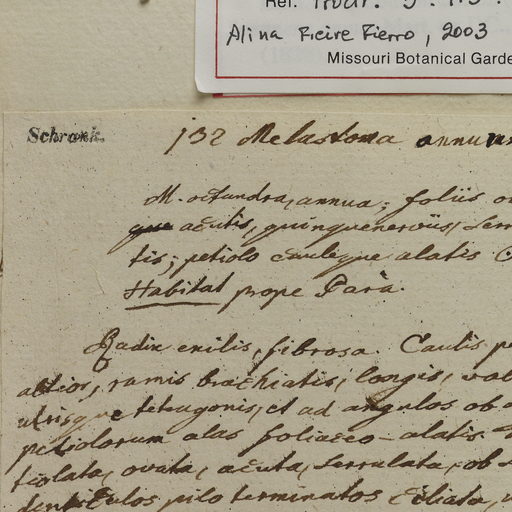 Ref. Prodr. 3: 113.
Alina Freire Fierro, 2003
Missouri Botanical Garde
Schrank.
132 Melastoma annuum
M. octandra, annua; foliis
que acutis, quinquenerviis, serr
tis; petiolo cauleque alatis
Habitat prope Parà.
Radix exilis, fibrosa. Caulis pe
altior, ramis brachiatis, longis,
utrisque tetragonis, et ad angulos ob
petiolorum alas foliaceo-alatis.
tiolata, ovata, acuta, serrulata, ob
denticulos pilo terminatos ciliata,